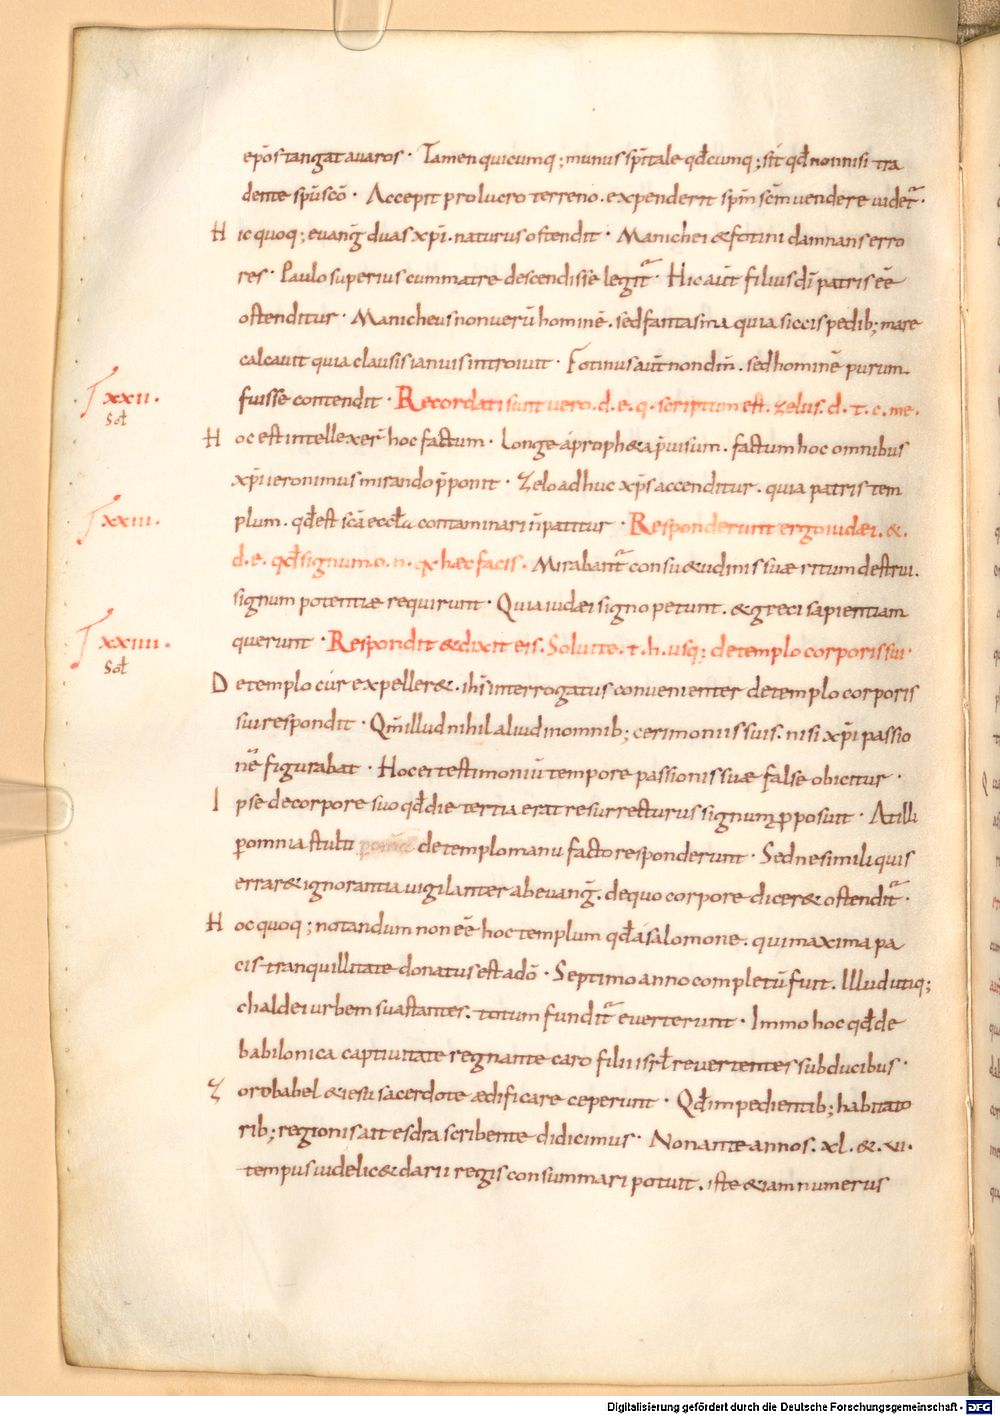 ep̄os tangat auaros · Tamen quicumq; munus sp̄itale qđcumq; sit qđ non nisi tra
dente sp̄u sc̄o · Accepit pro lucro terreno . expenderit sp̄m sc̄m uendere uidet᷑ ·
Hic quoq; euang̃ duas xp̄i . naturus ostendit · Manichei & fotini damnans erro
res · Paulo superius cum matre descendisse legit᷑ · Hic aut̄ filius dī patris eē
ostenditur · Manicheus non uerū hominē . sed fantasma quia siccis pedib; mare
calcauit quia clausis ianuis introiuit · Fotinus aut̄ non dm̄ . sed hominē purum
fuisse contendit · Recordati sunt vero . d . e . q . scriptum est . zelus . d . t . c . me .
xxii .
Sol
Hoc est intellexer̄ hoc factum · Longe á proph&a p̄uisum . factum hoc omnibus
xp̄i ieronimus mirando p̄ponit · Zelo adhuc xp̄s accenditur . quia patris tem
plum . qđ est scā ecctā contaminari n̄ patitur · Responderunt ergo iudęi . & .
xxiii .
d . e . qđ signum . o . n . qx hæc facis . Mirabant᷑ consu&udinis suæ ritum destrui .
signum potentiæ requirunt · Quia iudæi signo petunt . & greci sapientiam
querunt · Respondit & dixit eis . Soluite . t . h . usq; de templo corporis sui ·
xxiiii .
Sol
De templo cúr expeller& . ihs̄ interrogatus conuenienter de templo corporis
sui respondit · Qm̄ illud nihil aliud in omnib; cerimoniis suis . nisi xp̄i passio
nē figurabat · Hoc ei testimoniū tempore passionis suæ false obicitur ·
Ipse de corpore suo qđ die tertia erat resurrecturus signum pposuit · At illi
p omnia stulti de templo manu facto responderunt · Sed ne simili quis
errar& ignorantia uigilanter ab euang̃ . de quo corpore dicer& ostendit᷑ ·
Hoc quoq; notandum non eē hoc templum qđ á salomone . qui maxima pa
cis tranquillitate donatus est a dō · Septimo anno completū fuit . Illud utiq;
chaldei urbem uastantes . totum fundit᷑ euerterunt · Immo hoc qđ de
babilonica captiuitate regnante caro filii isrł reuertentes sub ducibus ·
Zorobabel & iesu sacerdote ædificare ceperunt · Qđ impedientib; habitato
rib; regionis ait esdra scribente didicimus · Non ante annos . xl . & . vi .
tempus uidelic& darii regis consummari potuit . iste &iam numerus
Digitalisierung gefördert durch die Deutsche Forschungsgemeinschaft · DFG